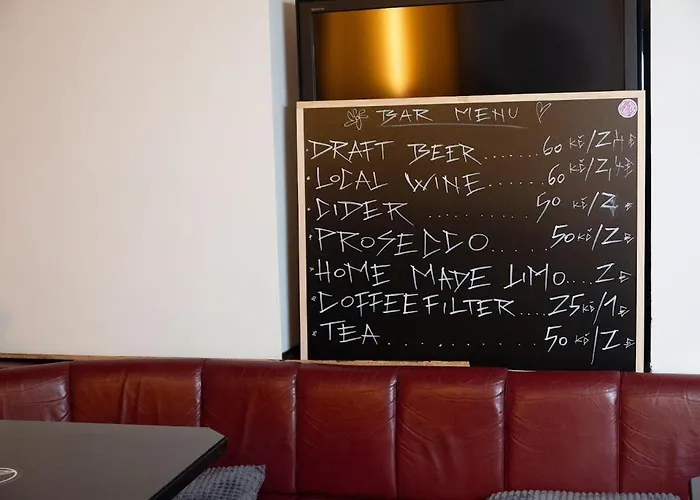 BAR MENU
DRAFT BEER......60 Kč/2,4 €
LOCAL WINE......60 Kč/2,4 €
CIDER ........ 50 Kč/2 €
PROSECCO......50 Kč/2 €
HOME MADE LIMO....2 €
COFFEE FILTER....25 Kč/1 €
TEA .............. 50 Kč/2 €